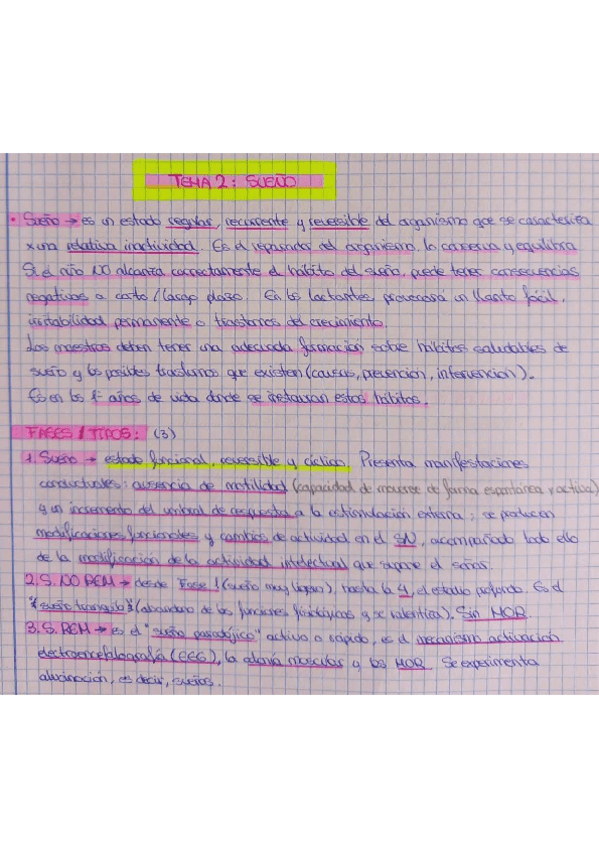 TEMA 2: SUEÑO
• Sueño → es un estado regular, recurrente y reversible del organismo que se caracteriza
x una relativa inactividad. Es el reparador del organismo, lo conserva y equilibra
Si el niño NO alcanza correctamente el hábito del sueño, puede tener consecuencias
negativas a corto / largo plazo. En los lactantes provocará un llanto fácil,
irritabilidad permanente o trastornos del crecimiento.
Los maestros deben tener una adecuada formación sobre hábitos saludables de
sueño y los posibles trastornos que existen (causas, prevención, intervención).
Es en los 1º años de vida donde se instauran estos hábitos.
FASES / TIPOS: (3)
1. Sueño → estado funcional, reversible y cíclico. Presenta manifestaciones
conductuales: ausencia de motilidad (capacidad de moverse de forma espontánea y activa)
y un incremento del umbral de respuesta a la estimulación externa; se producen
modificaciones funcionales y cambios de actividad en el SN, acompañado todo ello
de la modificación de la actividad intelectual que supone el soñar.
2. S. NO REM → desde Fase 1 (sueño muy ligero), hasta la 4, el estadio profundo. Es el
"sueño tranquilo" (abandono de las funciones fisiológicas y se ralentiza). Sin MOR.
3. S. REM → es el "sueño paradójico" activo o rápido, es el mecanismo activación
electroencefalografía (EEG), la atonía muscular y los MOR. Se experimenta
alucinación, es decir, sueños.